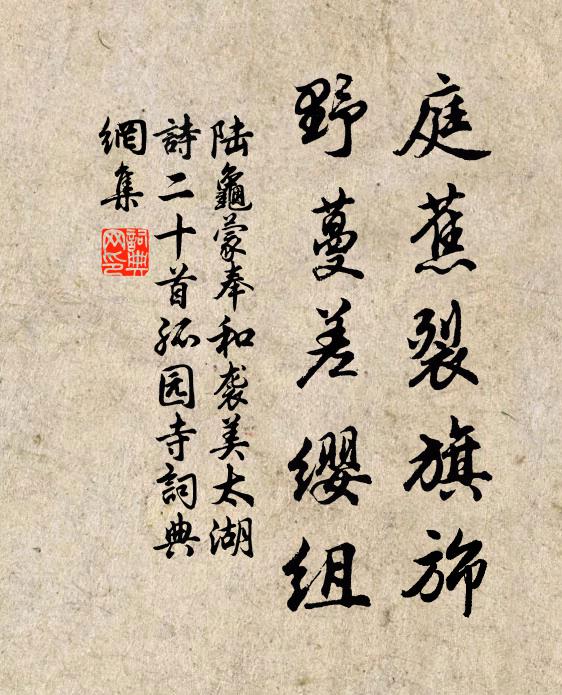 庭蕉裂旗旆
野蔓差缨组
陆龜蒙奉和袭美太湖
詩二十首孤园寺詞典
網集
詞典网印